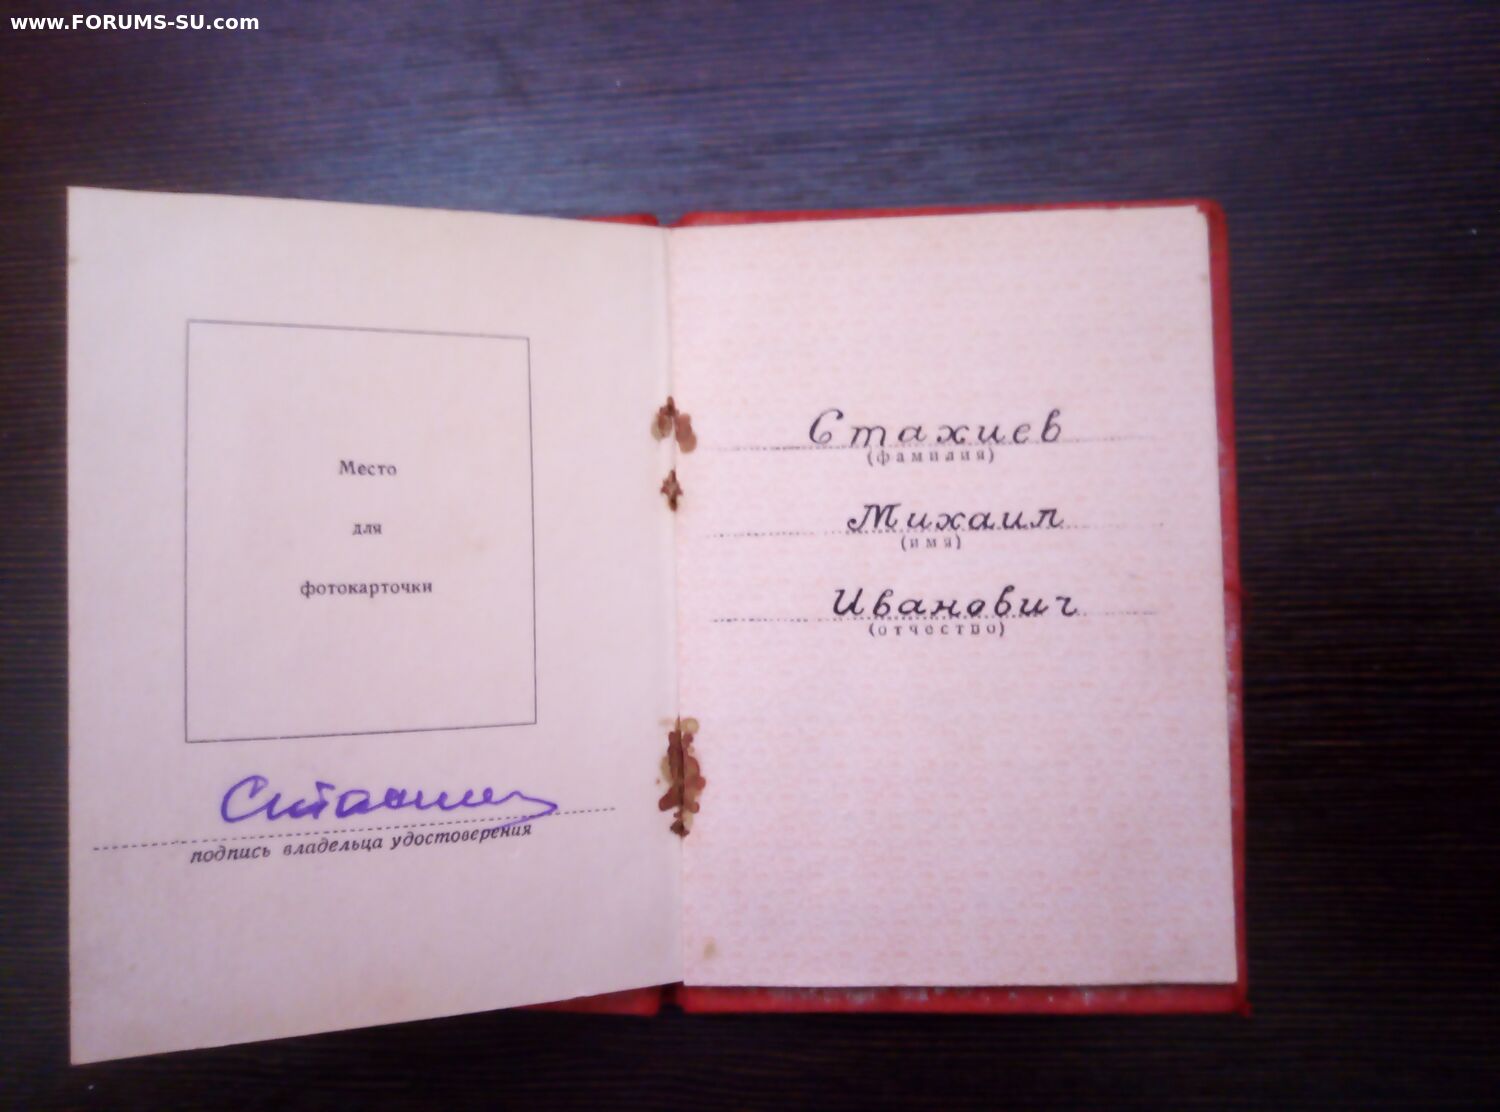 www.FORUMS-SU.com
Место
для
фотокарточки
подпись владельца удостоверения
Стахиев
(фамилия)
Михаил
(имя)
Иванович
(отчество)